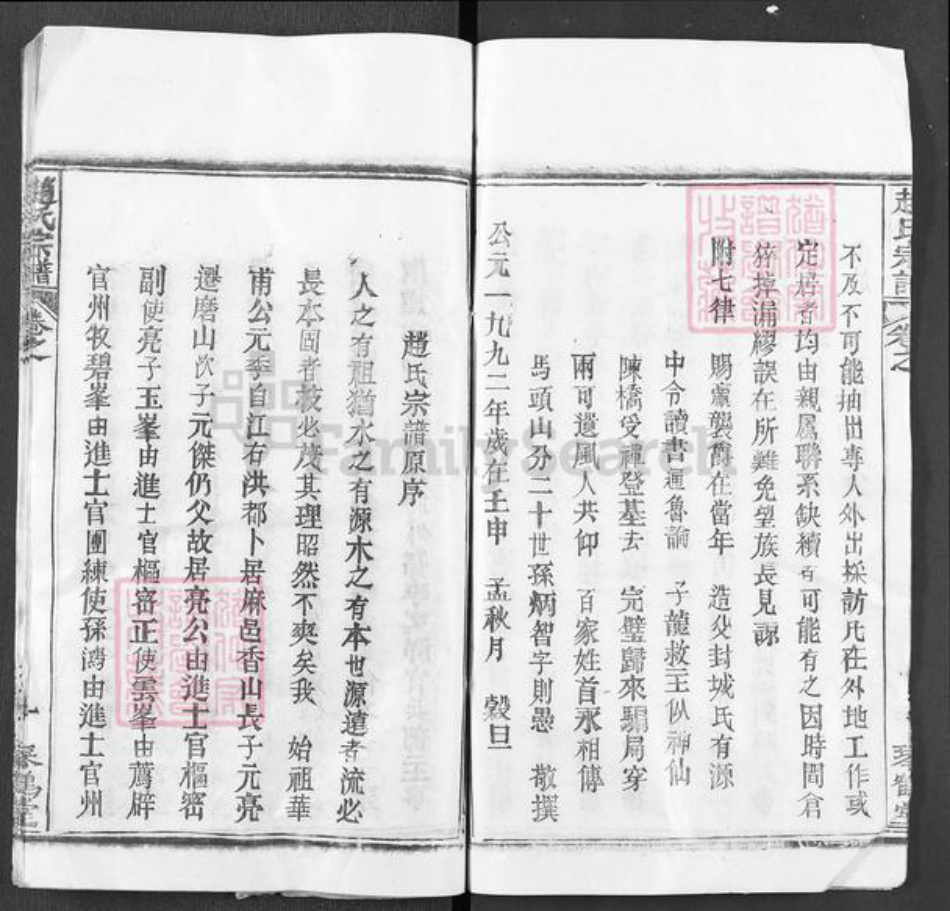 趙氏宗譜
卷之
琴鶴堂
不及不可能抽出專人外出採訪凡在外地工作或
定居者均由親属聯系缺續有可能有之因時間倉
猝掉漏繆誤在所難免望族長見諒
附七律
賜黨襲爵在當年 造父封城氏有源
中令讀書通魯論 子龍救主似神仙
陳橋受禪登基去 完璧歸來騙局穿
兩可遺風人共仰 百家姓首永相傳
馬頭山分二十世孫炳智字則愚 敬撰
公元一九九二年歲在壬申 孟秋月 穀旦
趙氏宗譜原序
人之有祖猶水之有源木之有本也源遠者流必
長本固者枝必茂其理昭然不爽矣我 始祖華
甫公元季自江右洪都卜居麻邑香山長子元亮
遷磨山次子元傑仍父故居亮公由進士官樞密
副使亮子玉峯由進士官樞密正使雲峯由薦辟
官州牧碧峯由進士官團練使孫鴻由進士官州
趙氏宗譜
卷之一
琴鶴堂
FamilySearch